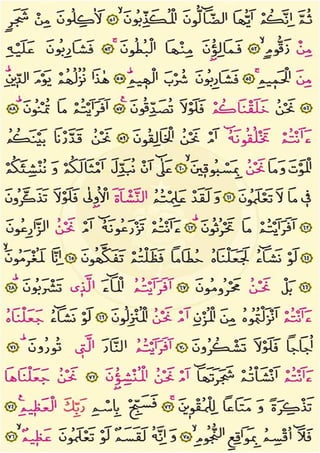 ثُمَّ اِنَّكُمْ اَيُّهَا الضَّٓالُّونَ الْمُكَذِّبُونَۙ ﴿٥١﴾ لَاٰكِلُونَ مِنْ شَجَرٍ
مِنْ زَقُّومٍۙ ﴿٥٢﴾ فَمَالِؤُ۫نَ مِنْهَا الْبُطُونَۚ ﴿٥٣﴾ فَشَارِبُونَ عَلَيْهِ
مِنَ الْحَم۪يمِۚ ﴿٥٤﴾ فَشَارِبُونَ شُرْبَ الْه۪يمِۜ ﴿٥٥﴾ هٰذَا نُزُلُهُمْ يَوْمَ الدّ۪ينِۜ
﴿٥٦﴾ نَحْنُ خَلَقْنَاكُمْ فَلَوْلَا تُصَدِّقُونَ ﴿٥٧﴾ اَفَرَاَيْتُمْ مَا تُمْنُونَۜ ﴿٥٨﴾
ءَاَنْتُمْ تَخْلُقُونَهُٓ اَمْ نَحْنُ الْخَالِقُونَ ﴿٥٩﴾ نَحْنُ قَدَّرْنَا بَيْنَكُمُ
الْمَوْتَ وَمَا نَحْنُ بِمَسْبُوق۪ينَۙ ﴿٦٠﴾ عَلٰٓى اَنْ نُبَدِّلَ اَمْثَالَكُمْ وَ نُنْشِئَكُمْ
ف۪ي مَا لَا تَعْلَمُونَ ﴿٦١﴾ وَ لَقَدْ عَلِمْتُمُ النَّشْاَةَ الْاُو۫لٰى فَلَوْلَا تَذَكَّرُونَ
﴿٦٢﴾ اَفَرَاَيْتُمْ مَا تَحْرُثُونَۜ ﴿٦٣﴾ ءَاَنْتُمْ تَزْرَعُونَهُٓ اَمْ نَحْنُ الزَّارِعُونَ
﴿٦٤﴾ لَوْ نَشَٓاءُ لَجَعَلْنَاهُ حُطَامًا فَظَلْتُمْ تَفَكَّهُونَ ﴿٦٥﴾ اِنَّا لَمُغْرَمُونَۙ
﴿٦٦﴾ بَلْ نَحْنُ مَحْرُومُونَ ﴿٦٧﴾ اَفَرَاَيْتُمُ الْمَٓاءَ الَّذ۪ي تَشْرَبُونَۜ ﴿٦٨﴾
ءَاَنْتُمْ اَنْزَلْتُمُوهُ مِنَ الْمُزْنِ اَمْ نَحْنُ الْمُنْزِلُونَ ﴿٦٩﴾ لَوْ نَشَٓاءُ جَعَلْنَاهُ
اُجَاجًا فَلَوْلَا تَشْكُرُونَ ﴿٧٠﴾ اَفَرَاَيْتُمُ النَّارَ الَّت۪ي تُورُونَۜ ﴿٧١﴾
ءَاَنْتُمْ اَنْشَأْتُمْ شَجَرَتَهَٓا اَمْ نَحْنُ الْمُنْشِؤُ۫نَ ﴿٧٢﴾ نَحْنُ جَعَلْنَاهَا
تَذْكِرَةً وَ مَتَاعًا لِلْمُقْو۪ينَۚ ﴿٧٣﴾ فَسَبِّحْ بِاسْمِ رَبِّكَ الْعَظ۪يمِ ﴿٧٤﴾
فَلَٓا اُقْسِمُ بِمَوَاقِعِ النُّجُومِۙ ﴿٧٥﴾ وَ اِنَّهُ لَقَسَمٌ لَوْ تَعْلَمُونَ عَظ۪يمٌۙ ﴿٧٦﴾